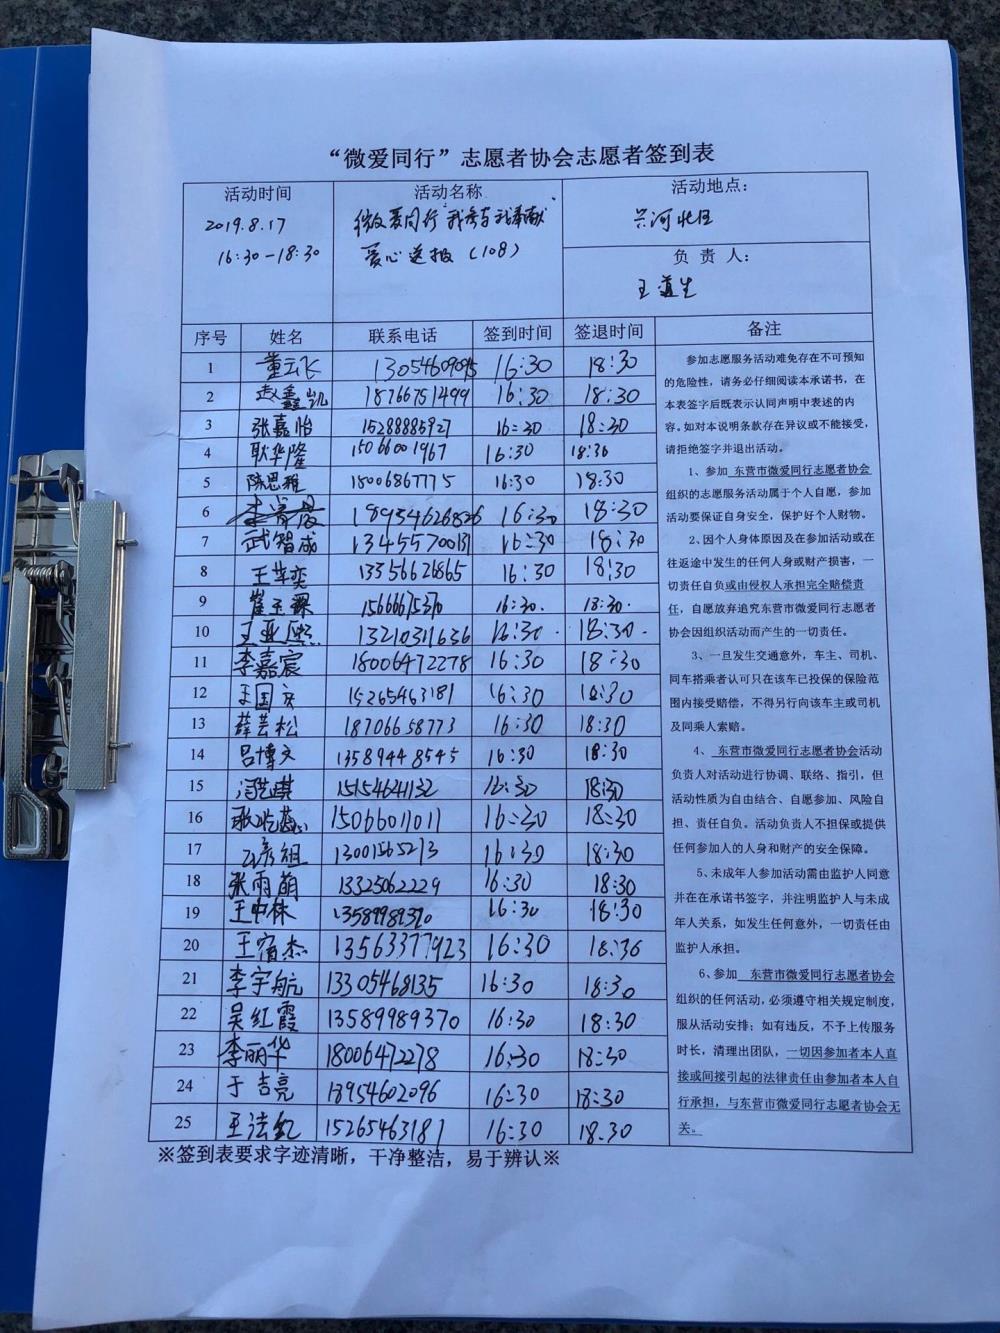 “微爱同行”志愿者协会志愿者签到表
活动时间
2019.8.17
16:30-18:30
活动名称
微爱同行 我参与我奉献
爱心送报（108）
活动地点：
负责人：
王道生
序号 姓名 联系电话 签到时间 签退时间 备注
1 董云飞 16:30 18:30
2 赵鑫凯 18766751499 16:30 18:30
3 张嘉怡 15288885927 16:30 18:30
4 耿华隆 15066001967 16:30 18:30
5 陈思雅 18006867775 16:30 18:30
6 18954626826 16:30 18:30
7 武智成 13455700131 16:30 18:30
8 王华奕 13356628865 16:30 18:30
9 崔玉霖 15666675370 16:30. 18:30.
10 王亚熙 13210311636 16:30. 18:30.
11 李嘉宸 18006472278 16:30 18:30
12 王国 15265463181 16:30 18:30
13 薛芸松 18706658773 16:30 18:30
14 吕博文 13589448545 16:30 18:30
15 15154641132 16:30 18:30
16 15066011011 16:30 18:30
17 13001565273 16:30 18:30
18 张雨萌 13325062229 16:30 18:30
19 王中林 16:30 18:30
20 王宿杰 13563377923 16:30 18:30
21 李宇航 13305468135 16:30 18:30
22 吴红霞 13589989370 16:30 18:30
23 李丽华 18006472278 16:30 18:30
24 于吉亮 18954602096 16:30 18:30
25 王法红 15265463181 16:30 18:30
参加志愿服务活动难免存在不可预知
的危险性，请务必仔细阅读本承诺书，在
本表签字后既表示认同声明中表述的内
容。如对本说明条款存在异议或不能接受，
请拒绝签字并退出活动。
1、参加 东营市微爱同行志愿者协会
组织的志愿服务活动属于个人自愿，参加
活动要保证自身安全，保护好个人财物。
2、因个人身体原因及在参加活动或在
往返途中发生的任何人身或财产损害，一
切责任自负或由侵权人承担完全赔偿责
任，自愿放弃追究东营市微爱同行志愿者
协会因组织活动而产生的一切责任。
3、一旦发生交通意外，车主、司机、
同车搭乘者认可只在该车已投保的保险范
围内接受赔偿，不得另行向该车主或司机
及同乘人索赔。
4、 东营市微爱同行志愿者协会活动
负责人对活动进行协调、联络、指引，但
活动性质为自由结合、自愿参加、风险自
担、责任自负。活动负责人不担保或提供
任何参加人的人身和财产的安全保障。
5、未成年人参加活动需由监护人同意
并在在承诺书签字，并注明监护人与未成
年人关系，如发生任何意外，一切责任由
监护人承担。
6、参加 东营市微爱同行志愿者协会
组织的任何活动，必须遵守相关规定制度，
服从活动安排；如有违反，不予上传服务
时长，清理出团队，一切因参加者本人直
接或间接引起的法律责任由参加者本人自
行承担，与东营市微爱同行志愿者协会无
关。
※签到表要求字迹清晰，干净整洁，易于辨认※